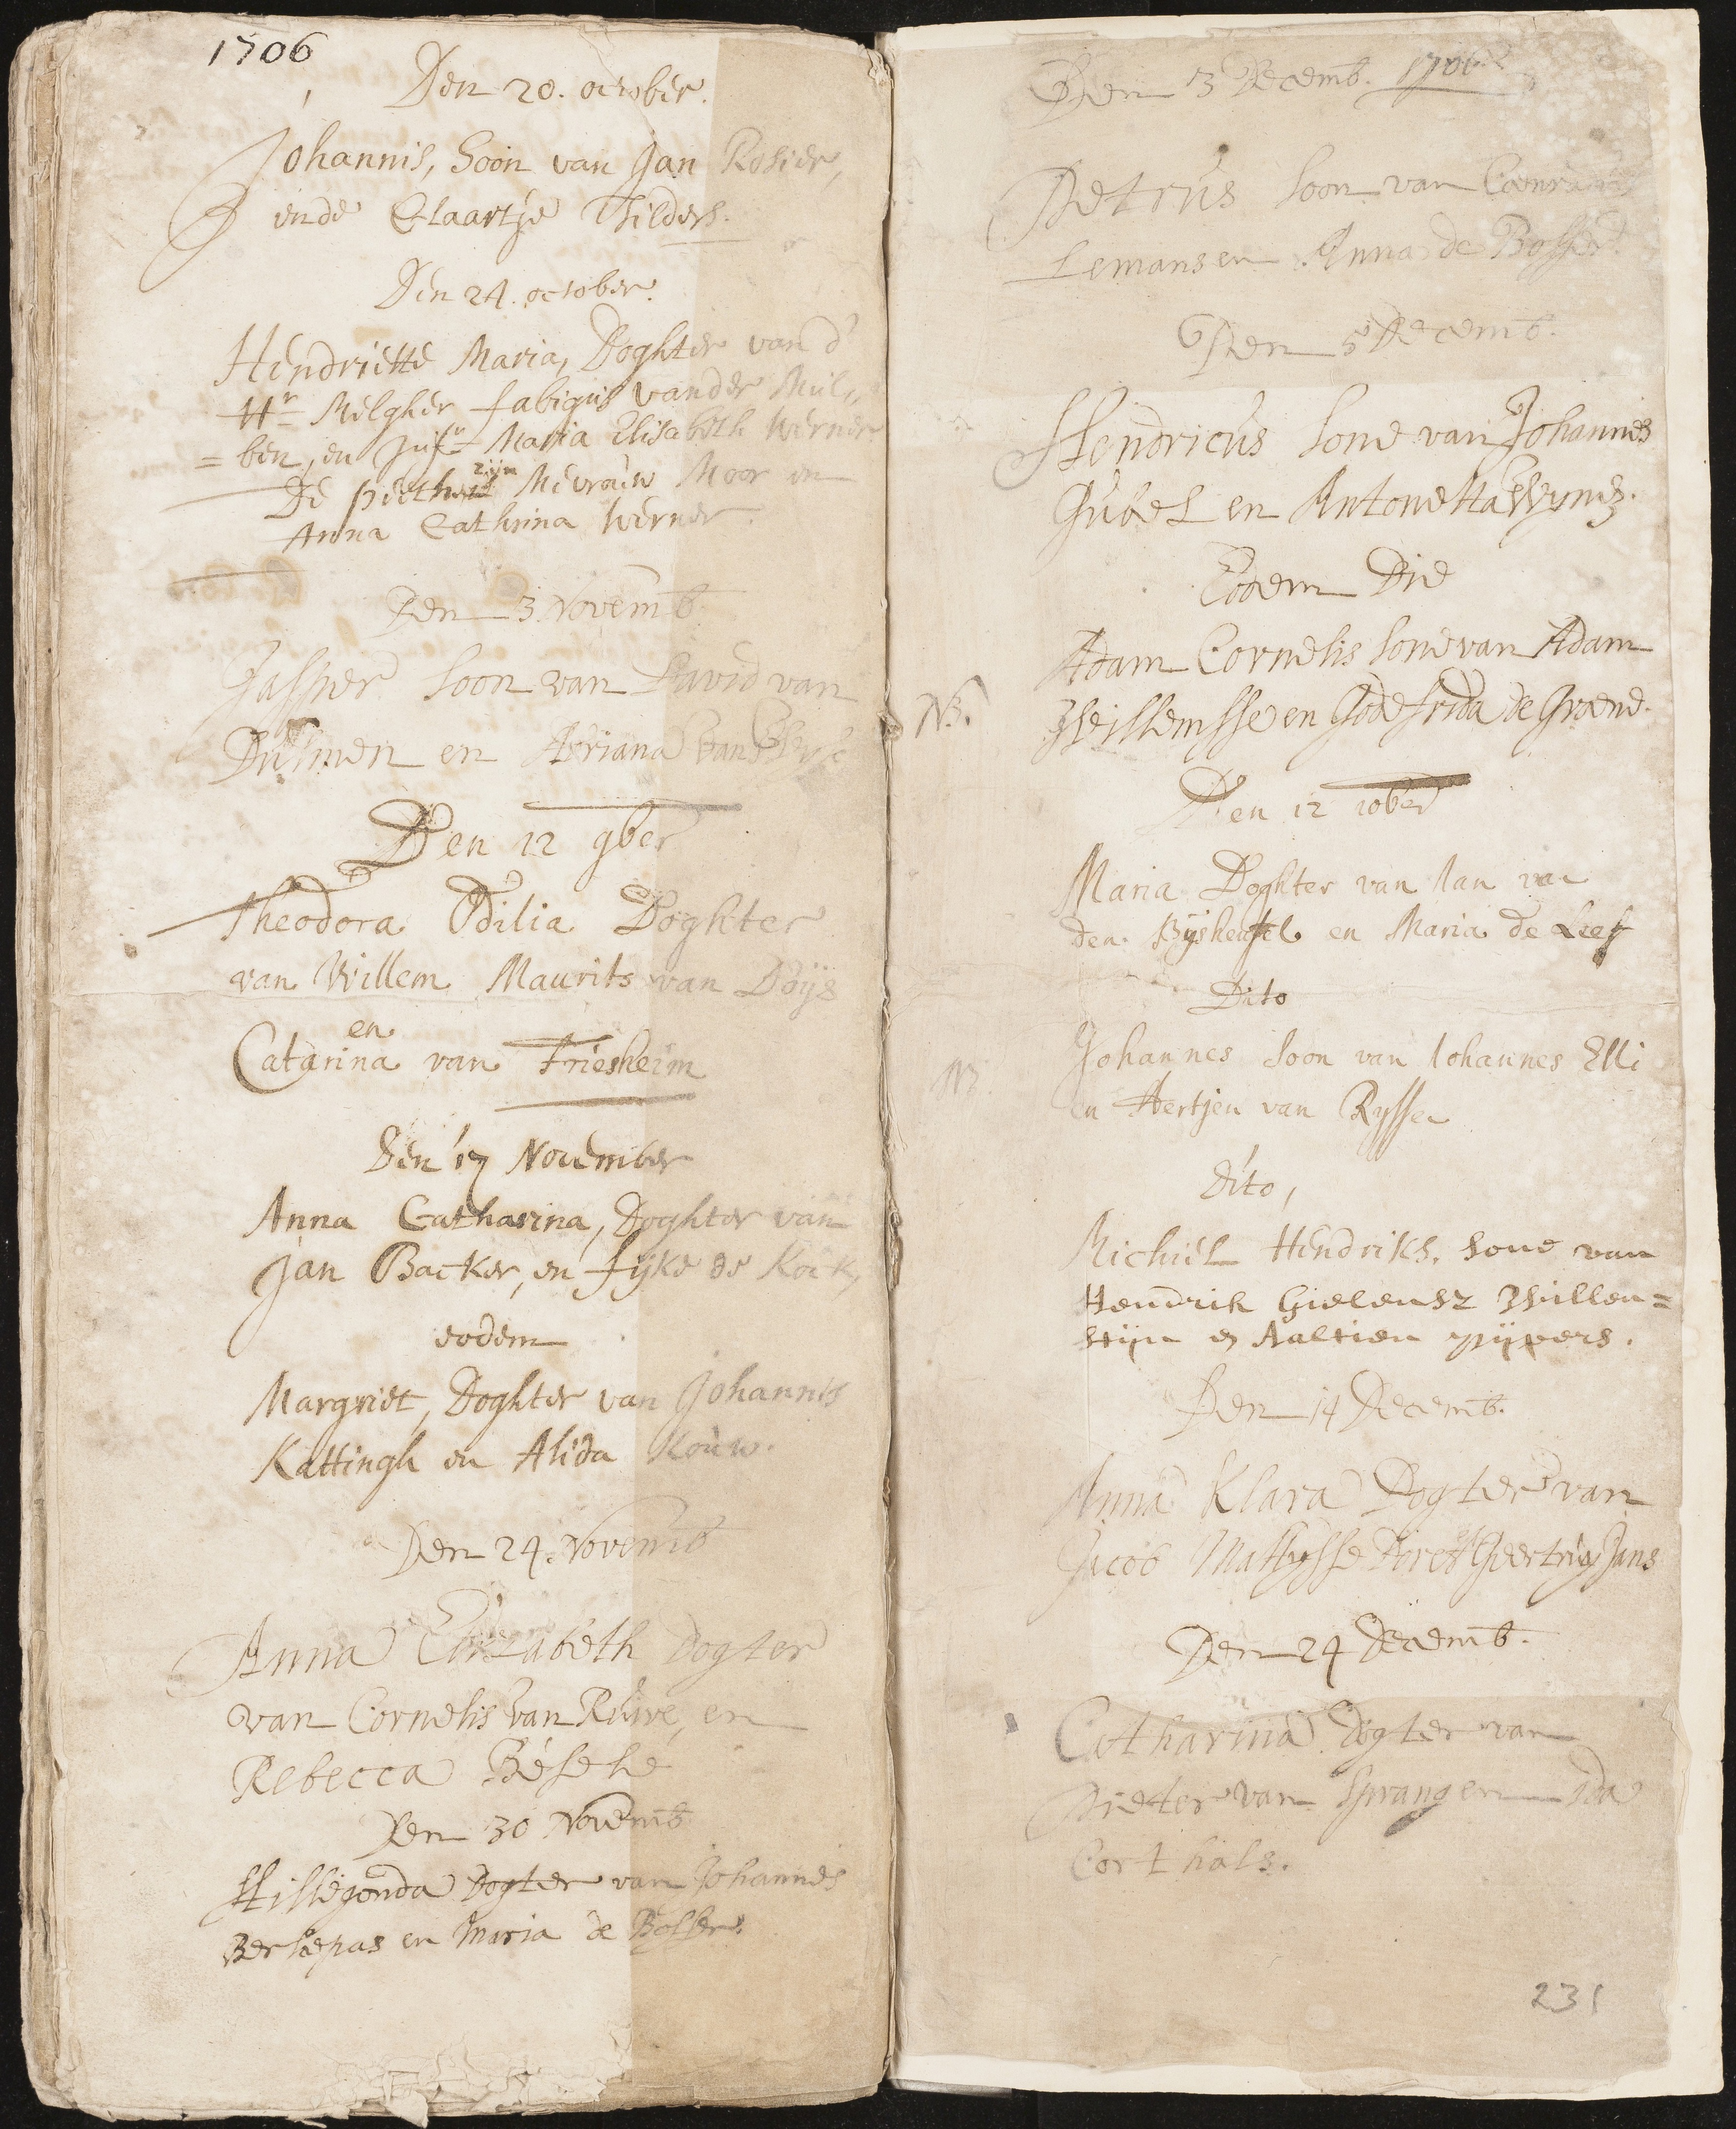 1706
Den 20. october.
Johannis, Soon van Jan Rosier,
ende Claartje Thilders.
Den 24. october.
Hendriette Maria, Doghter van d'
Hr Melgher fabiqus vander Mul,,
= ben, en Jufr Maria Elisabeth Werner
De peeth zijn Mevrouw Moor en
Anna Cathrina Werner.
Den 3. Novemb.
Jasper Soon van David van
Dulmen en Adriana van
Den 12 9ber
Theodora Odilia Doghter
van Willem Maurits van Doijs
en
Catarina van Friesheim
Den 17 November
Anna Catharina, Doghter van
Jan Backer, en fijke de Kock,
eodem
Margriet, Doghter van Johannis
Kattingh en Alida Kouw.
Den 24. Novemb
Anna Elizabeth Dogter
van Cornelis van Reuve, en
Rebecca Besele
Den 30 Novemb
Hillegonda Dogter van Johannes
Berlepas en Maria de
Den 3 Decemb. 1706
Petrus Soon van Coenradus
Lemans en Anna de Bosser
Den 5 Decemb.
Hendricus Sone van Johannes
Gubel en Antonetta Wynes.
Eodem Die
Adam Cornelis Sone van Adam
NB. Willemsse en Godefrida de Groene.
Den 12 10ber
Maria Doghter van Ian van
den Bijsheusel en Maria de Leef
Dito
Johannes Soon van Iohannes Elli
NB. en Aertjen van Ryssen
dito,
Michiel Hendriks. Sone van
Hendrik Gielensz Willen=
stijn en Aaltien pijpers.
Den 14 Decemb.
Anna Klara Dogter van
Jacob Mathysse en Geertruy Jans
Den 24 Decemb.
Catharina Dogter van
Pieter van Sprangen Ida
Corthals.
231